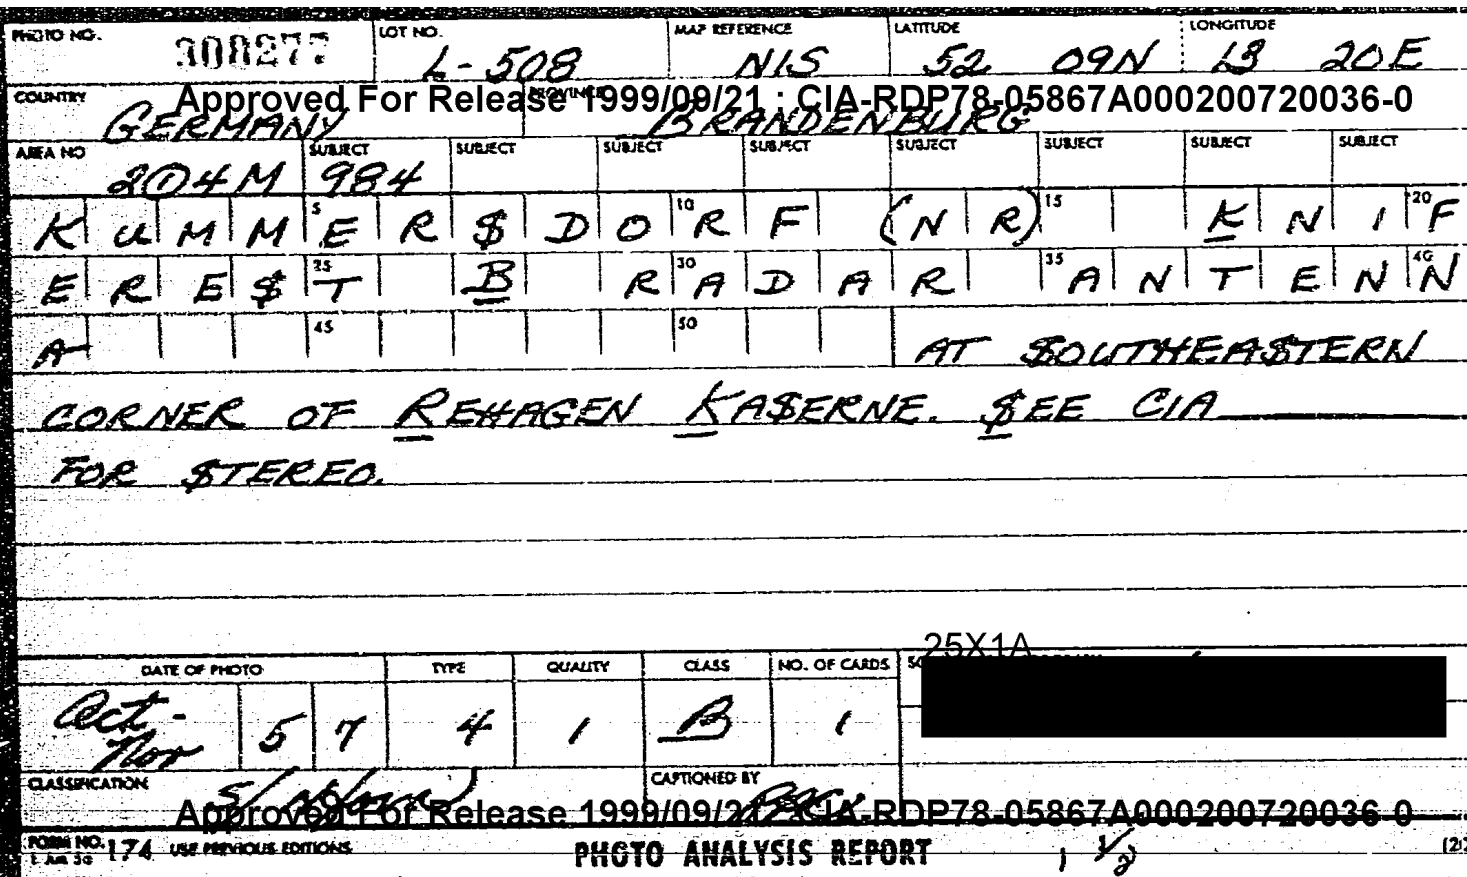 PHOTO NO. 308277 LOT NO. L-508 MAP REFERENCE NIS LATITUDE 52 09N LONGITUDE 13 20E
Approved For Release 1999/09/21 : CIA-RDP78-05867A000200720036-0
COUNTRY GERMANY PROVINCE BRANDENBURG
AREA NO 204M SUBJECT 984 SUBJECT SUBJECT SUBJECT SUBJECT SUBJECT SUBJECT SUBJECT
KUMMER$DORF (NR) KNIF
ERE$T B RADAR ANTENN
A AT $OUTHEA$TERN
CORNER OF REHAGEN KA$ERNE. $EE CIA
FOR $TEREO.
25X1A
DATE OF PHOTO TYPE QUALITY CLASS NO. OF CARDS
Oct - Nov 57 4 1 B 1
CLASSIFICATION CAPTIONED BY
Approved For Release 1999/09/21 : CIA-RDP78-05867A000200720036-0
FORM NO. 174 USE PREVIOUS EDITIONS PHOTO ANALYSIS REPORT 1 1/2